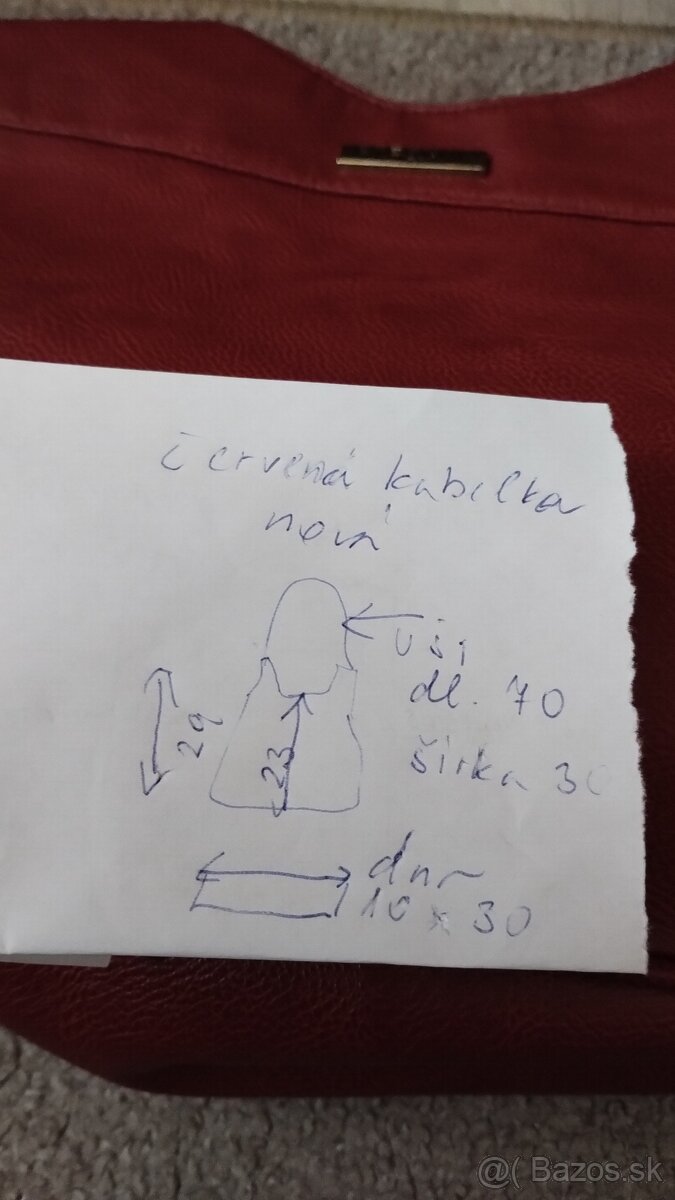 červená kabelka
nová
uši
dl. 70
šírka 30
29
23
dno
10 x 30
@( Bazos.sk